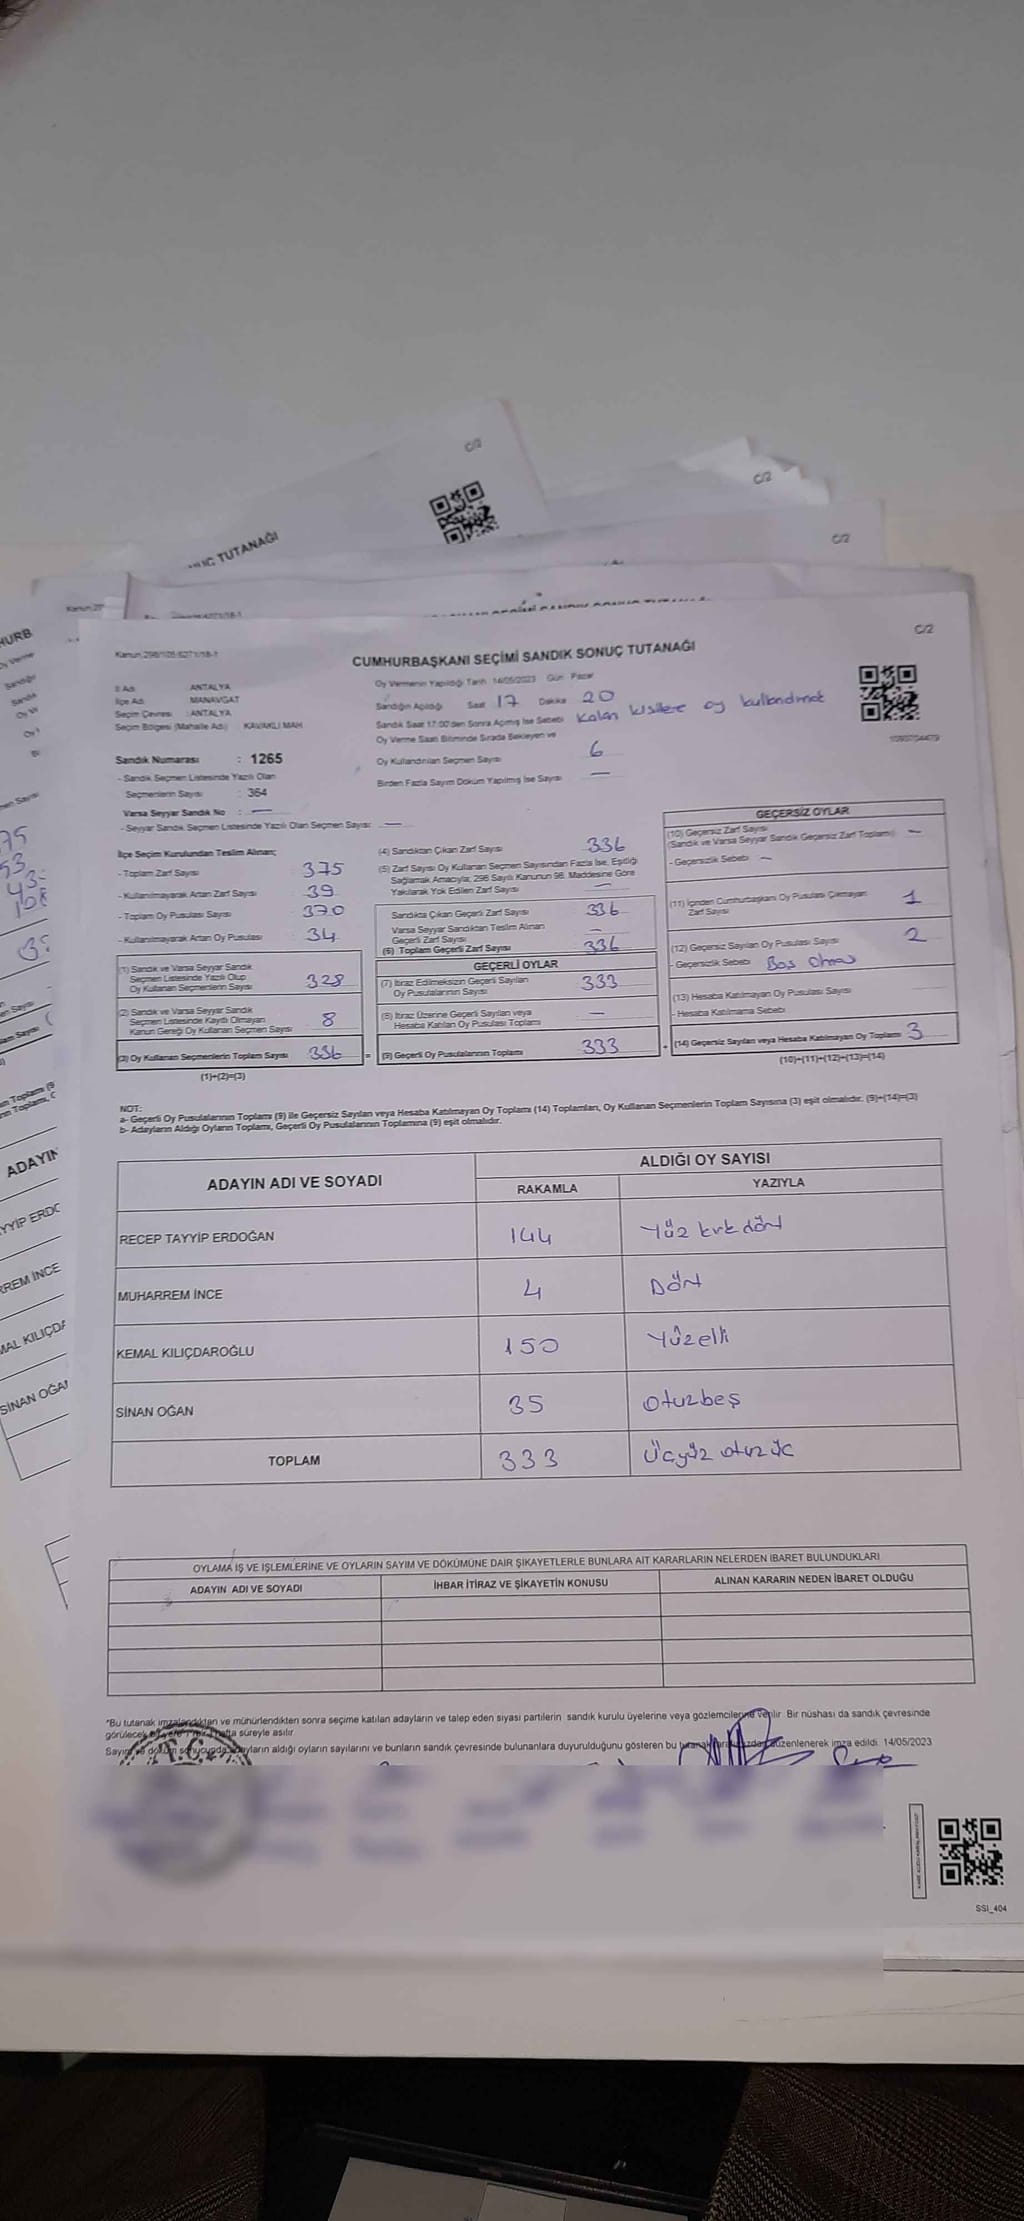 C/2
C/2
UÇ TUTANAĞI
C/2
Kanun 298/105-6271/18-1
C/2
CUMHURBAŞKANI SEÇİMİ SANDIK SONUÇ TUTANAĞI
İl Adı : ANTALYA
İlçe Adı : MANAVGAT
Seçim Çevresi : ANTALYA
Seçim Bölgesi (Mahalle Adı) : KAVAKLI MAH
Oy Vermenin Yapıldığı Tarih 14/05/2023 Gün Pazar
Sandığın Açıldığı Saat 17 Dakika 20
Sandık Saat 17:00'den Sonra Açılmış İse Sebebi Kalan kişilere oy kullandırıldı
Oy Verme Saati Bitiminde Sırada Bekleyen ve
Oy Kullandırılan Seçmen Sayısı 6
Birden Fazla Sayım Döküm Yapılmış İse Sayısı —
Sandık Numarası : 1265
- Sandık Seçmen Listesinde Yazılı Olan
Seçmenlerin Sayısı : 364
Varsa Seyyar Sandık No : —
- Seyyar Sandık Seçmen Listesinde Yazılı Olan Seçmen Sayısı: —
İlçe Seçim Kurulundan Teslim Alınan;
- Toplam Zarf Sayısı 375
- Kullanılmayarak Artan Zarf Sayısı 39
- Toplam Oy Pusulası Sayısı 370
- Kullanılmayarak Artan Oy Pusulası 34
(1) Sandık ve Varsa Seyyar Sandık
Seçmen Listesinde Yazılı Olup
Oy Kullanan Seçmenlerin Sayısı 328
(2) Sandık ve Varsa Seyyar Sandık
Seçmen Listesinde Kayıtlı Olmayan
Kanun Gereği Oy Kullanan Seçmen Sayısı 8
(3) Oy Kullanan Seçmenlerin Toplam Sayısı 336
(1)+(2)=(3)
(4) Sandıktan Çıkan Zarf Sayısı 336
(5) Zarf Sayısı Oy Kullanan Seçmen Sayısından Fazla İse, Eşitliği
Sağlamak Amacıyla, 298 Sayılı Kanunun 98. Maddesine Göre
Yakılarak Yok Edilen Zarf Sayısı —
Sandıkta Çıkan Geçerli Zarf Sayısı 336
Varsa Seyyar Sandıktan Teslim Alınan
Geçerli Zarf Sayısı —
(6) Toplam Geçerli Zarf Sayısı 336
GEÇERLİ OYLAR
(7) İtiraz Edilmeksizin Geçerli Sayılan
Oy Pusulalarının Sayısı 333
(8) İtiraz Üzerine Geçerli Sayılan veya
Hesaba Katılan Oy Pusulası Toplamı —
(9) Geçerli Oy Pusulalarının Toplamı 333
GEÇERSİZ OYLAR
(10) Geçersiz Zarf Sayısı
(Sandık ve Varsa Seyyar Sandık Geçersiz Zarf Toplamı) —
- Geçersizlik Sebebi —
(11) İçinden Cumhurbaşkanı Oy Pusulası Çıkmayan
Zarf Sayısı 1
(12) Geçersiz Sayılan Oy Pusulası Sayısı 2
- Geçersizlik Sebebi Boş Olması
(13) Hesaba Katılmayan Oy Pusulası Sayısı
- Hesaba Katılmama Sebebi
(14) Geçersiz Sayılan veya Hesaba Katılmayan Oy Toplamı 3
(10)+(11)+(12)+(13)=(14)
NOT:
a- Geçerli Oy Pusulalarının Toplamı (9) ile Geçersiz Sayılan veya Hesaba Katılmayan Oy Toplamı (14) Toplamları, Oy Kullanan Seçmenlerin Toplam Sayısına (3) eşit olmalıdır. (9)+(14)=(3)
b- Adayların Aldığı Oyların Toplamı, Geçerli Oy Pusulalarının Toplamına (9) eşit olmalıdır.
ADAYIN ADI VE SOYADI ALDIĞI OY SAYISI
RAKAMLA YAZIYLA
RECEP TAYYİP ERDOĞAN 144 Yüz kırk dört
MUHARREM İNCE 4 Dört
KEMAL KILIÇDAROĞLU 150 Yüzelli
SİNAN OĞAN 35 Otuzbeş
TOPLAM 333 Üçyüz otuz üç
OYLAMA İŞ VE İŞLEMLERİNE VE OYLARIN SAYIM VE DÖKÜMÜNE DAİR ŞİKAYETLERLE BUNLARA AİT KARARLARIN NELERDEN İBARET BULUNDUKLARI
ADAYIN ADI VE SOYADI İHBAR İTİRAZ VE ŞİKAYETİN KONUSU ALINAN KARARIN NEDEN İBARET OLDUĞU
*Bu tutanak imzalandıktan ve mühürlendikten sonra seçime katılan adayların ve talep eden siyasi partilerin sandık kurulu üyelerine veya gözlemcilerine verilir. Bir nüshası da sandık çevresinde
görülecek hafta süreyle asılır.
Sayım ve döküm sonucunda adayların aldığı oyların sayılarını ve bunların sandık çevresinde bulunanlara duyurulduğunu gösteren bu tutanak düzenlenerek imza edildi. 14/05/2023
T.C.
SSI_404